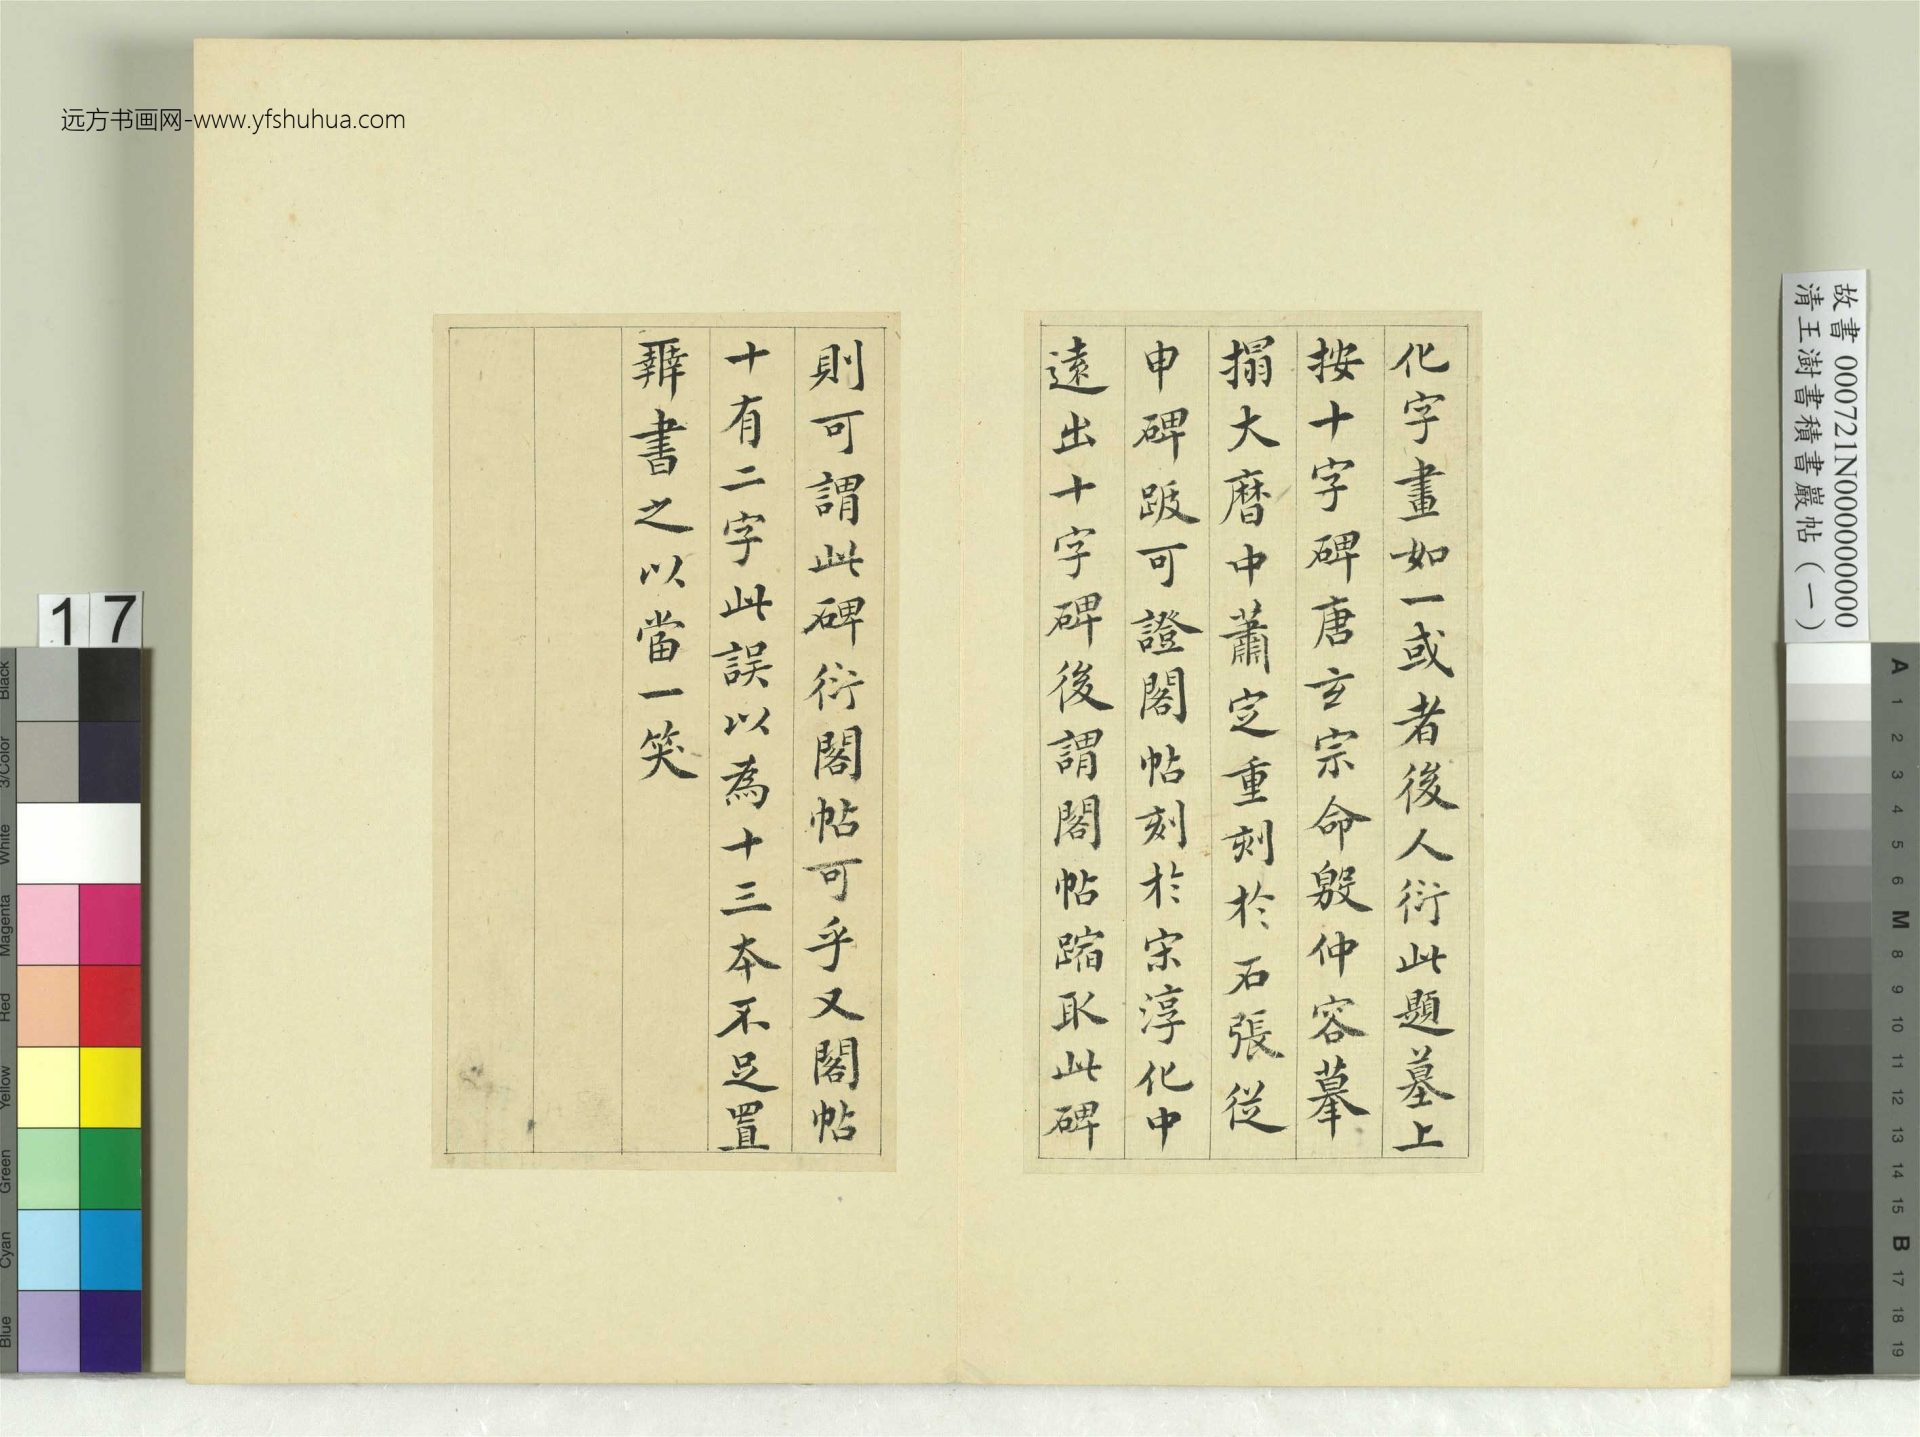 化字畫如一或者後人衍此題墓上
按十字碑唐玄宗命殷仲容摹
搨大曆中蕭定重刻於石張從
申碑跋可證閣帖刻於宋淳化中
遠出十字碑後謂閣帖蹜取此碑
則可謂此碑衍閣帖可乎又閣帖
十有二字此誤以為十三本不足置
辨書之以當一笑
远方书画网-www.yfshuhua.com
故書 000721N000000000
清王澍書積書巖帖(一)
17
Black
3/Color
White
Magenta
Red
Yellow
Green
Cyan
Blue
A
1
2
3
4
5
6
M
8
9
10
11
12
13
14
15
B
17
18
19